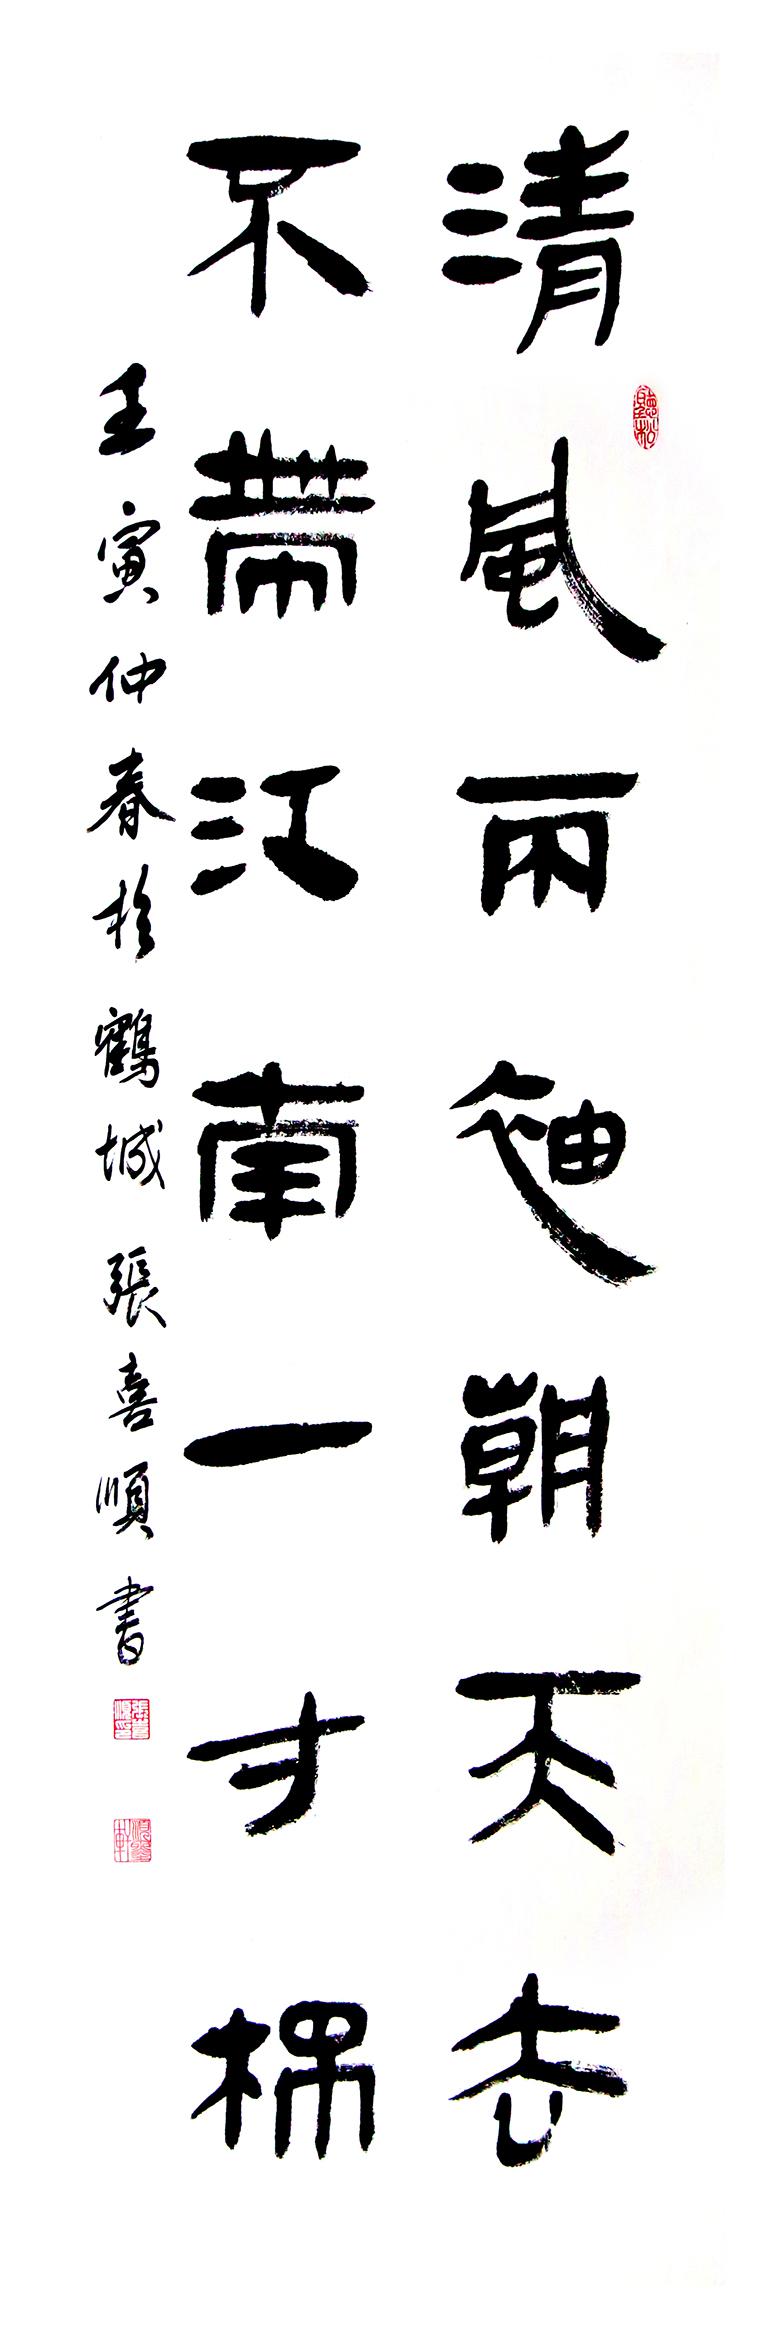 清風兩袖朝天去
聽松
不帶江南一寸棉
壬寅仲春於鶴城張喜順書
張喜順印